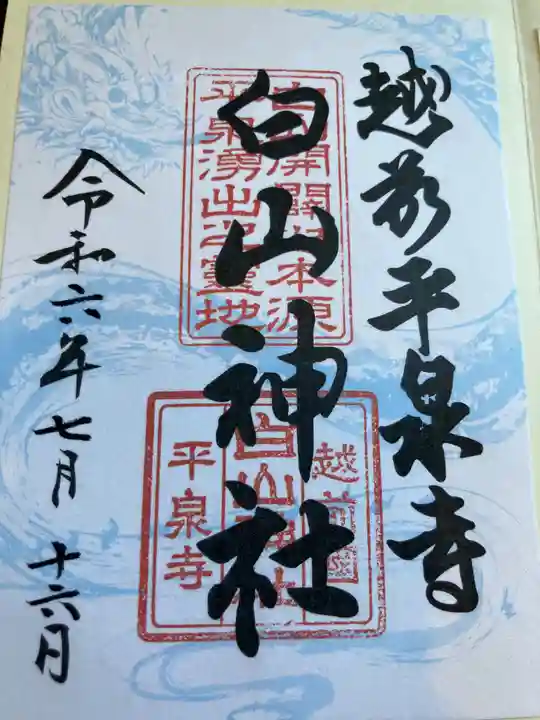 越前平泉寺
白山神社
令和六年七月十六日
平泉湧出之靈地
越前
白山神社
平泉寺